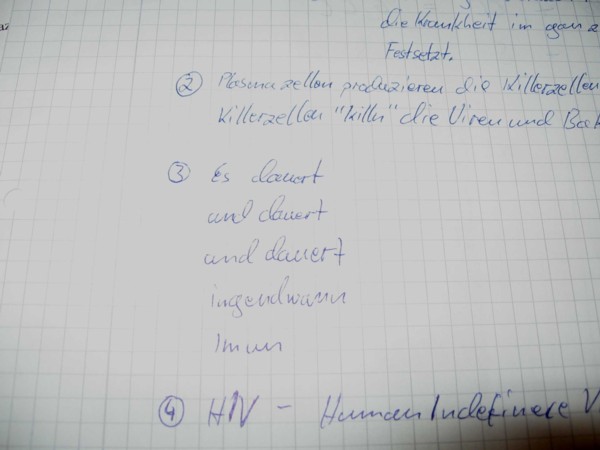 die Krankheit im ganz
Festsetzt.
② Plasmazellen produzieren die Killerzellen
Killerzellen "killn" die Viren und Bak
③ Es dauert
und dauert
und dauert
irgendwann
Imun
④ HIV - Human Indefinere V